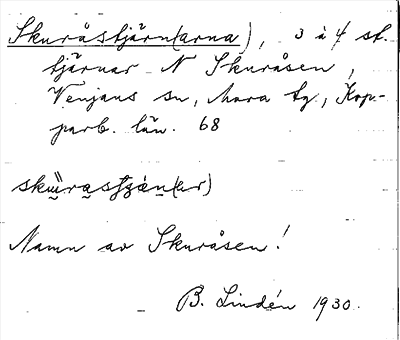 Skuråstjärn(arna), 3 à 4 st.
tjärnar N Skuråsen,
Venjans sn, Mora tg., Kop-
parb. län. 68
Namn av Skuråsen!
B. Lindén 1930.